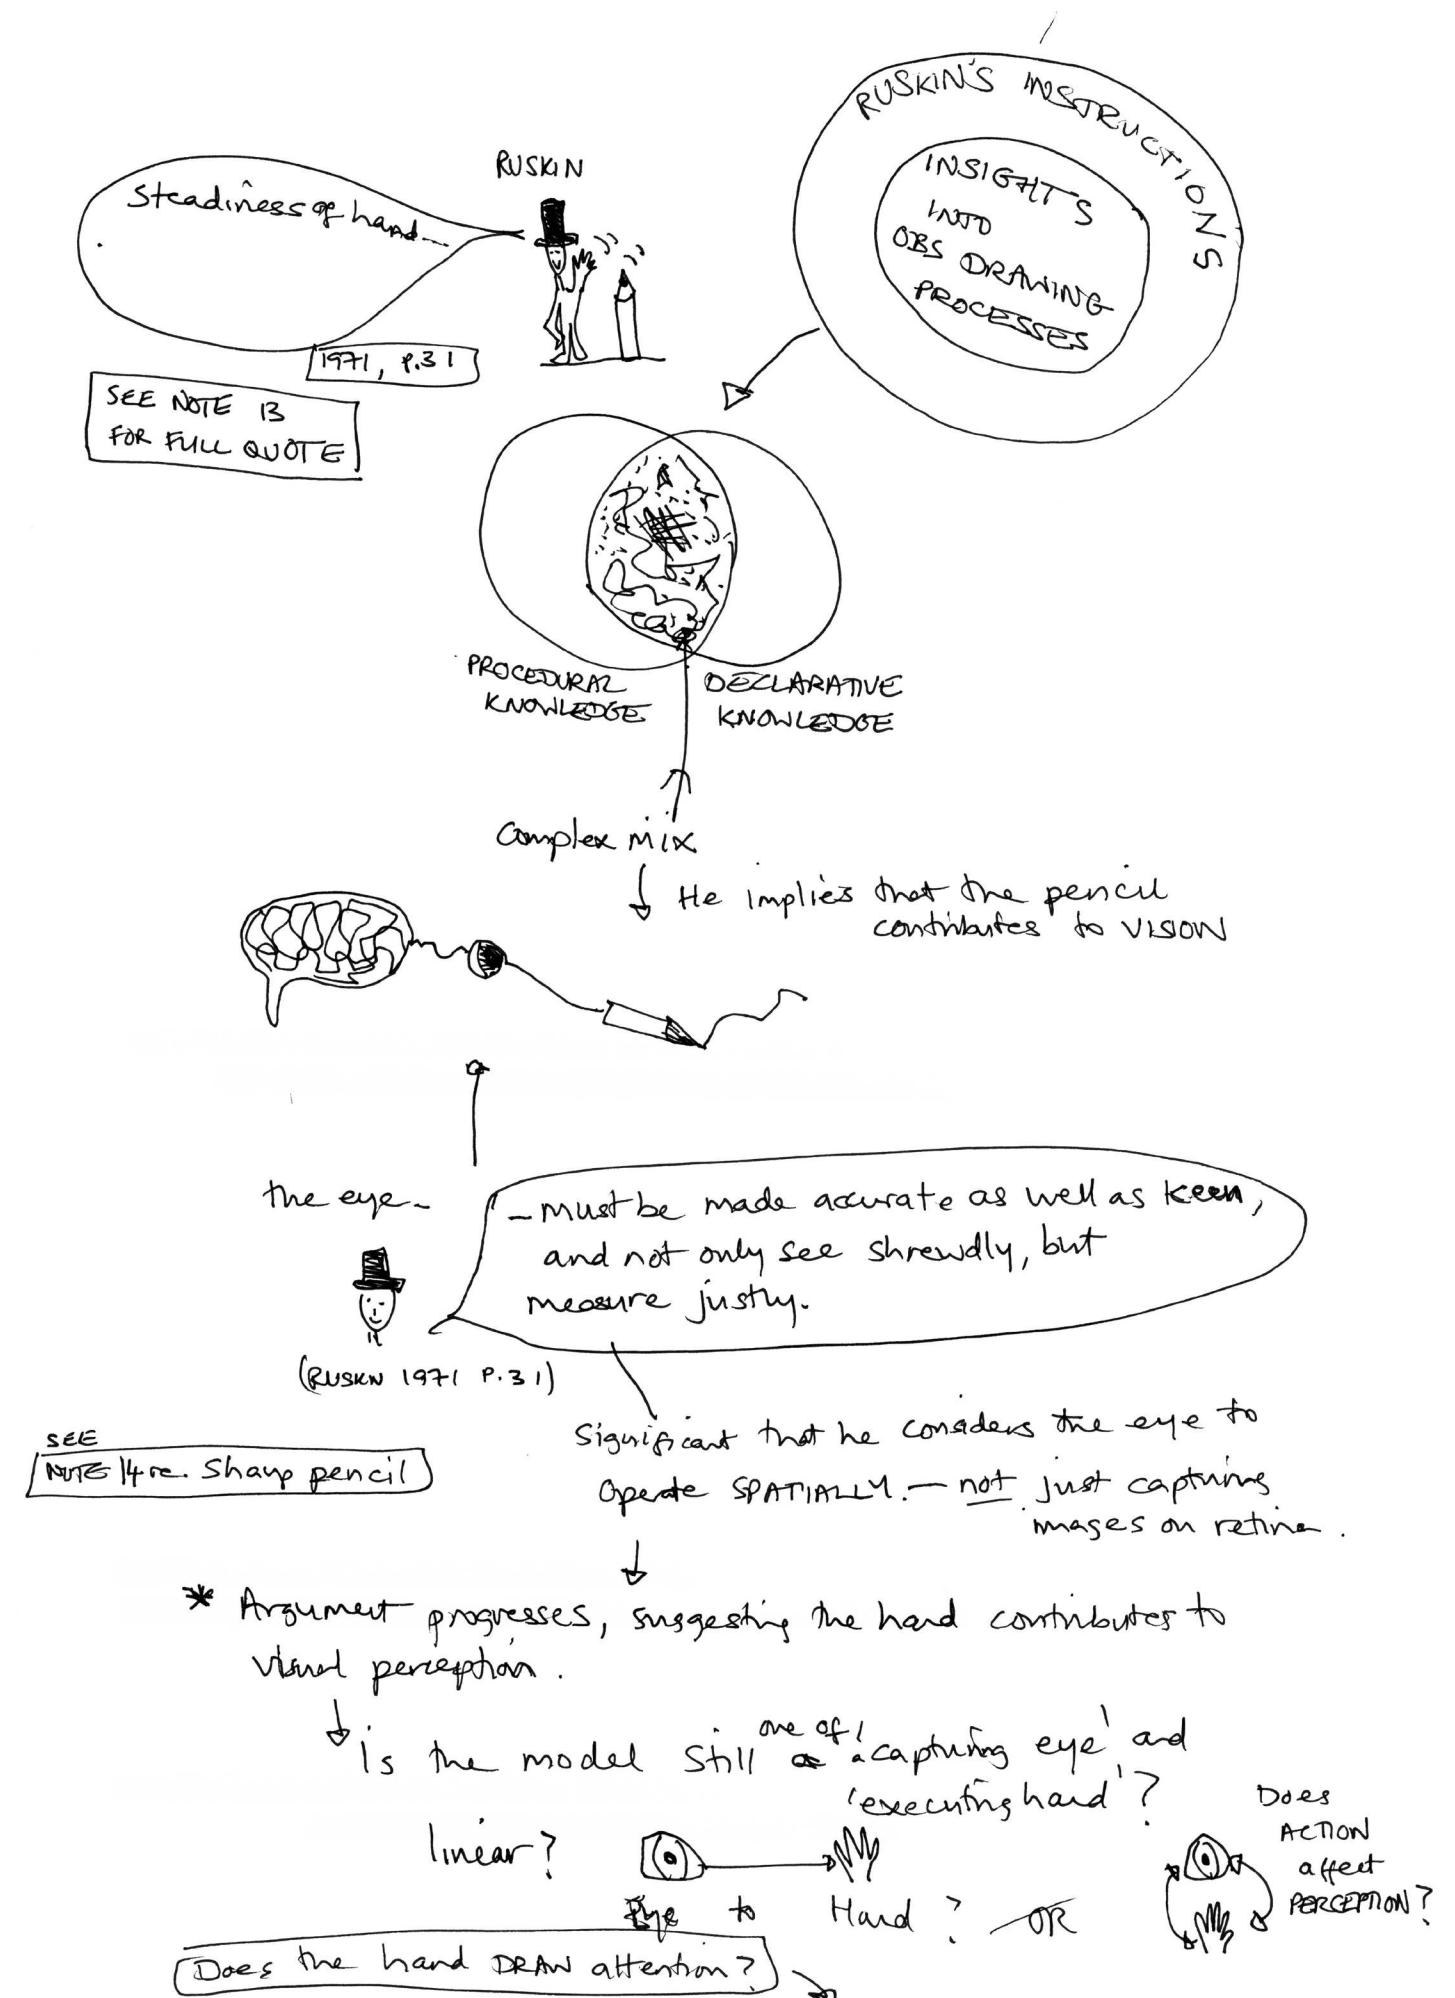 RUSKIN'S INSTRUCTIONS
INSIGHT'S
INTO
OBS DRAWING
PROCESSES
RUSKIN
Steadiness of hand...
1971, P.31
SEE NOTE 13
FOR FULL QUOTE
PROCEDURAL
KNOWLEDGE
DECLARATIVE
KNOWLEDGE
Complex mix
He implies that the pencil
contributes to VISION
the eye-
- must be made accurate as well as keen,
and not only see shrewdly, but
measure justly.
(RUSKN 1971 P.31)
SEE
NOTE 14 re. Sharp pencil
Significant that he considers the eye to
operate SPATIALLY. - not just capturing
images on retina.
* Argument progresses, suggesting the hand contributes to
visual perception.
Is the model still one of 'capturing eye' and
'executing hand'?
linear?
Eye to Hand? OR
Does
ACTION
affect
PERCEPTION?
Does the hand DRAW attention?